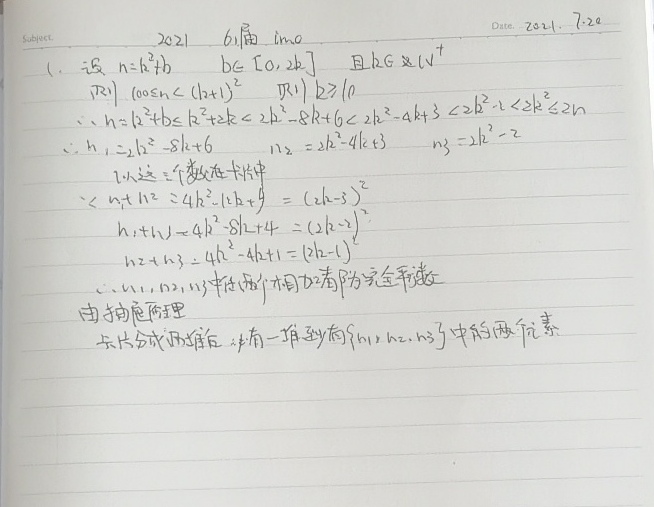 Subject.
Date. 2021. 7.20
2021 61届 imo
1. 设 n=k²+b b∈[0,2k] 且k∈ N⁺
则 100≤n<(k+1)² 则 k≥10
∴ n=k²+b≤k²+2k<2k²-8k+6<2k²-4k+3<2k²-2<2k²≤2n
∴ n₁=2k²-8k+6 n₂=2k²-4k+3 n3=2k²-2
这三个数在卡片中
∵ n₁+n2=4k²-12k+9=(2k-3)²
n₁+n3=4k²-8k+4=(2k-2)²
n2+n3=4k²-4k+1=(2k-1)²
∴ n1,n2,n3中的两个相加都为完全平方数
由抽屉原理
卡片分成两堆后 必有一堆至少有{n1,n2,n3}中的两个元素